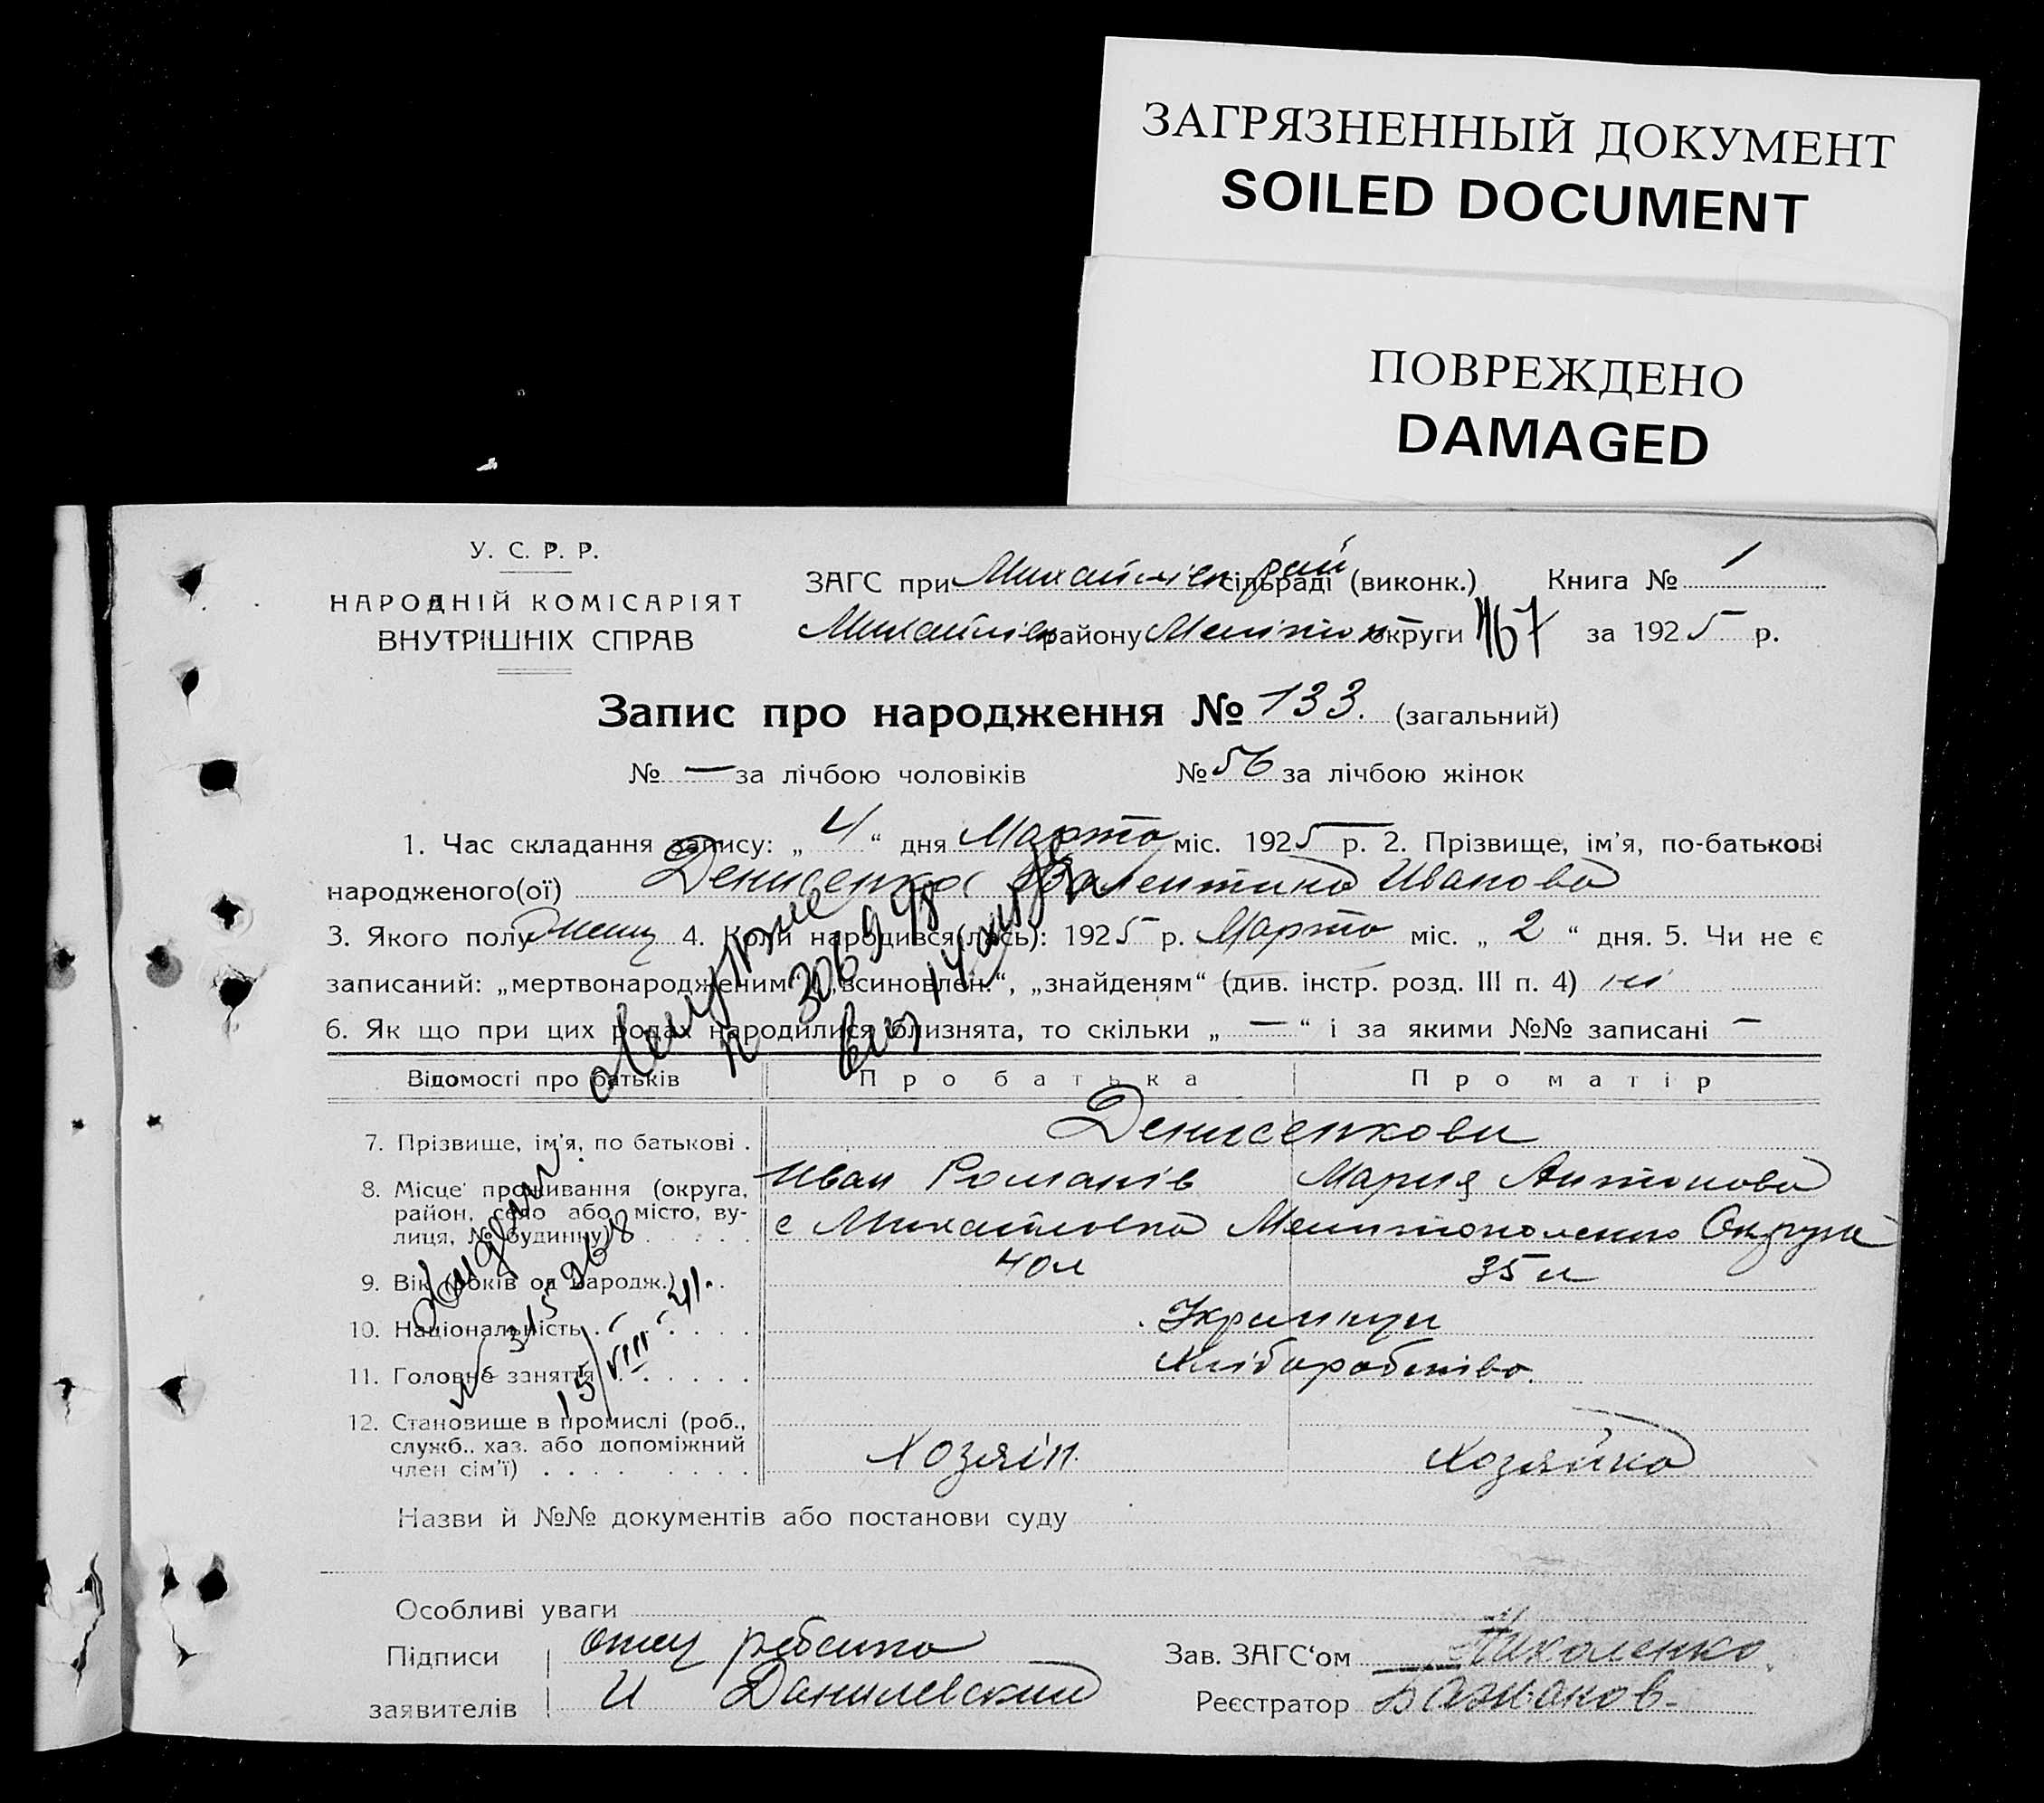 ЗАГРЯЗНЕННЫЙ ДОКУМЕНТ
SOILED DOCUMENT
ПОВРЕЖДЕНО
DAMAGED
У. С. Р. Р.
НАРОДНІЙ КОМІСАРІЯТ
ВНУТРІШНІХ СПРАВ
ЗАГС при Михайлівск рай сільраді (виконк.) Книга № 1
Михайлівск району Мелітоп округи 467 за 1925 р.
Запис про народження № 133. (загальний)
№ — за лічбою чоловіків № 56 за лічбою жінок
1. Час складання запису: „ 4 “ дня Марта міс. 1925 р. 2. Прізвище, ім'я, по-батькові
народженого(ої) Денисенко Валентина Иванова
3. Якого полу женщ 4. Коли народився(лась): 1925 р. Марта міс. „ 2 “ дня. 5. Чи не є
записаний: „мертвонародженим“, „всиновлен.“, „знайденям“ (див. інстр. розд. III п. 4) ні
6. Як що при цих родах народилися близнята, то скільки „ — “ і за якими №№ записані —
Відомості про батьків Про батька Про матір
7. Прізвище, ім'я, по батькові . Денисенкови
Иван Романів Мария Антонова
8. Місце проживання (округа,
район, село або місто, ву-
лиця, № будинку) . . . . .
с Михайловка Мелитопольско Округи
9. Вік (років од народж.) . . 40 л 35 л
10. Національність . . . . . Украинци
11. Головне заняття . . . . . Хліборобство.
12. Становище в промислі (роб.,
служб., хаз. або допоміжний
член сім'ї) . . . . . . . .
Хозяін. Хозяйка
№ 315968
15/VIII 41.
Назви й №№ документів або постанови суду
Особливі уваги
Підписи отец ребенка Зав. ЗАГС'ом Михаленко.
заявителів И Данилевский Реєстратор